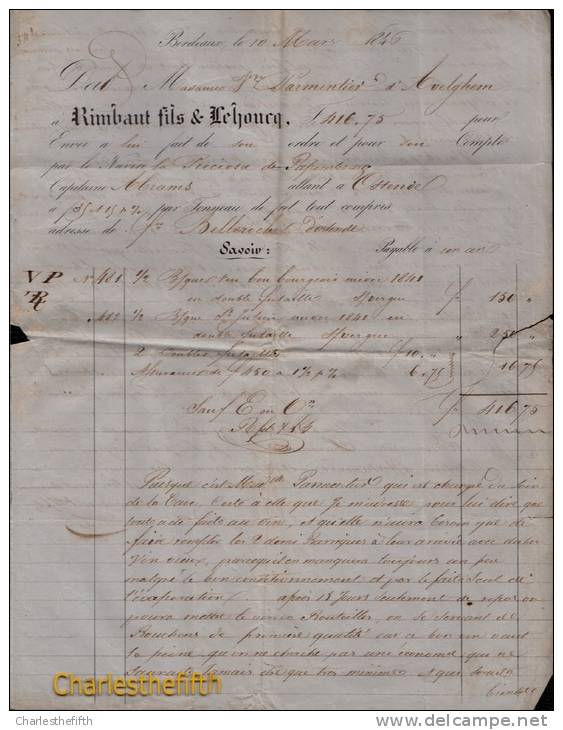 Bordeaux, le 10 Mars 1846
Doit Madame Parmentier d'Avelghem
a Rimbaut fils & Lehoucq, f 416.75 pour
Envoi a lui fait de son ordre et pour son Compte
par le Navire la Preciosa de Papenberg
Capitaine Abrams allant a Ostende
a par Tonneau de fret tout compris
adresse de Bellaroche d'ostende
Savoir: Payable à son
VP N° 481 1/2 Bque vin bon bourgeois 1841
TR en double futaille f 150 "
482 1/2 Bque St Julien 1841 en
double futaille 250 "
2 Doubles futailles f 10. "
Assurances de f 450 a 1 1/2 p % 6.75 16 75
Sauf E ou On f 416 75
R fils & L
Puisque c'est Mad. Parmentier qui est chargé du soin
de la Cave, c'est à elle que Je m'adresse pour lui dire que
tout a été fait au vin, et qu'elle n'aura besoin que de
faire remplir les 2 demi Barriques à leur arrivée avec du bon
Vin vieux, parcequ'il en manquera toujours un peu
malgré le bon conditionnement et par le fait seul de
l'évaporation. après 15 Jours seulement de repos on
pourra mettre le vin en Bouteilles, on se servant de
Bouchons de première qualité car a bon vin vaut
la peine, qu'on ne choisit par une économie qui ne
saurait Jamais être que très minime, et qui
Charlesthefifth
Charlesthefifth
www.delcampe.net